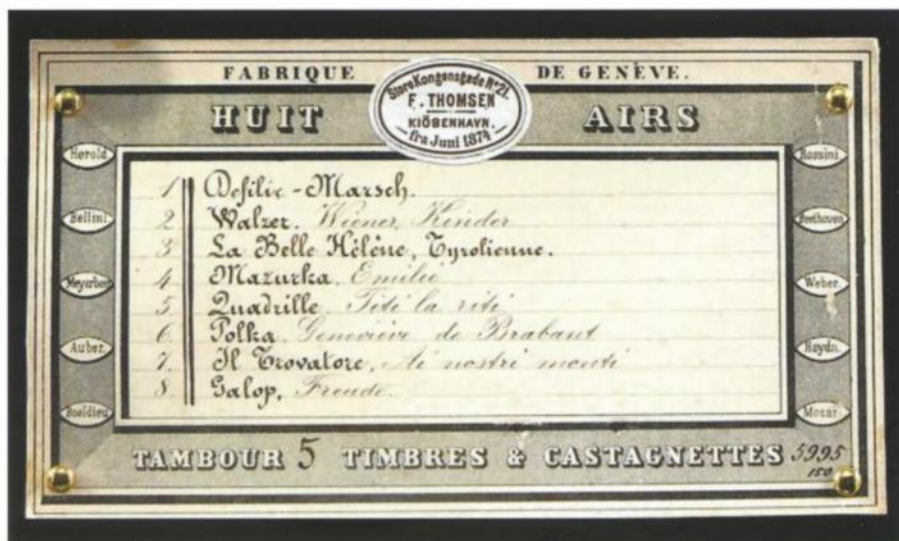 FABRIQUE DE GENÈVE.
Store Kongensgade No 21.
F. THOMSEN
KIÖBENHAVN.
fra Juni 1874
HUIT AIRS
Herold.
Bellini
Meyerbeer
Auber.
Boeldieu
Rossini.
Beethoven
Weber.
Haydn.
Mozar.
1 Defilir-Marsch.
2 Walzer. Wiener Kinder
3 La Belle Hélène, Tyrolienne.
4 Mazurka. Emilie
5. Quadrille Titi la riti
6. Polka. Geneviève de Brabant
7. Il Trovatore, Ai nostri monti
8. Galop, Freude.
TAMBOUR 5 TIMBRES & CASTAGNETTES 5995
150